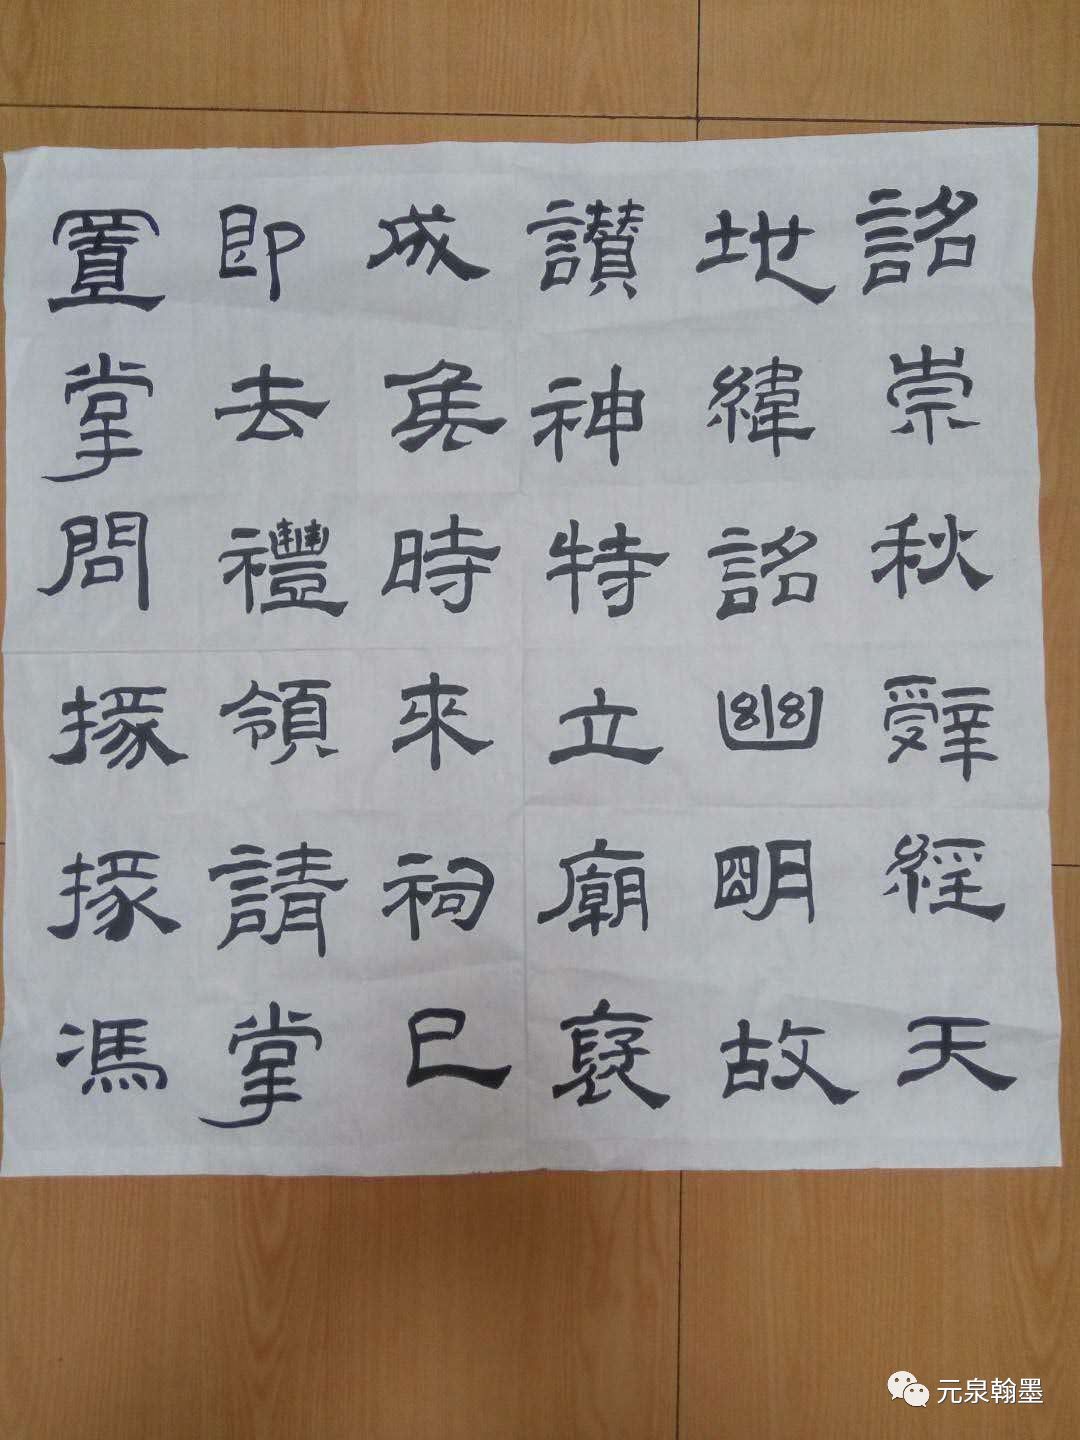 詺崇秋辭經天
地緯詺幽明故
讃神特立廟褒
成侯時來祠已
即去禮領請掌
置掌問掾掾馮
元泉翰墨